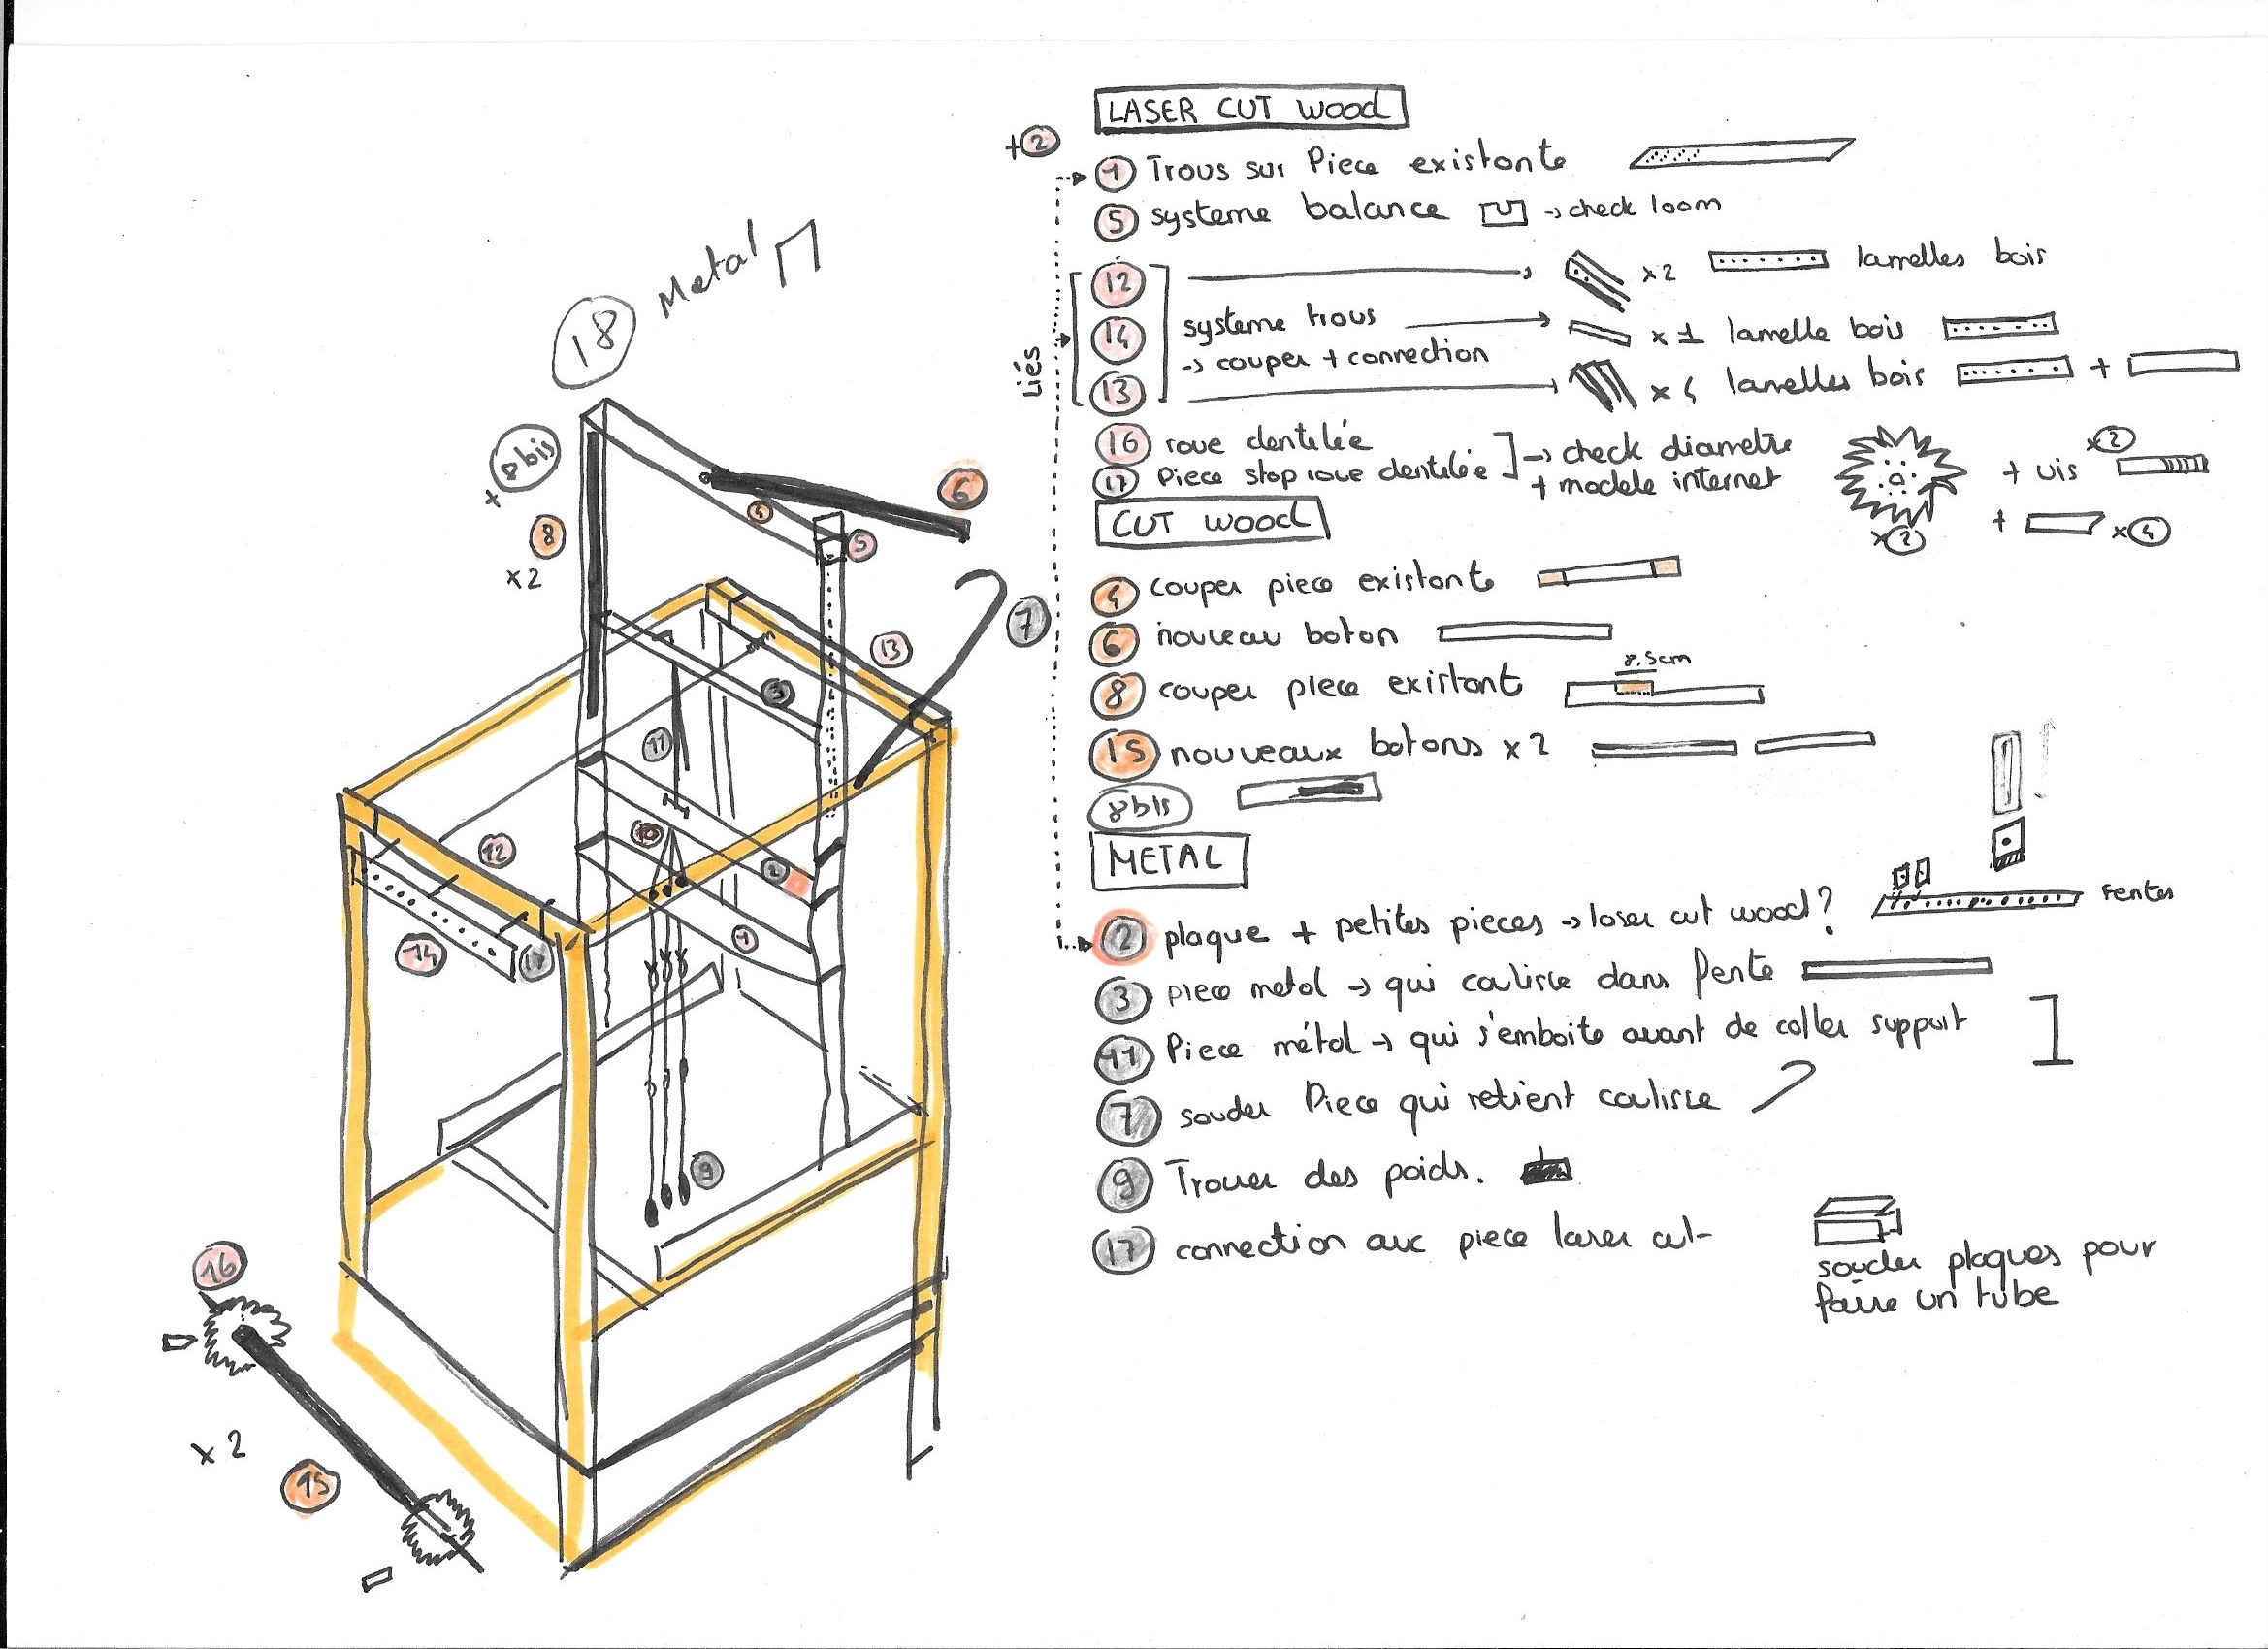 LASER CUT WOOD
+ 2
1 Trous sur Piece existante
5 systeme balance → check loom
12 x2 lamelles bois
Liés
14 systeme trous → x 1 lamelle bois
→ couper + connection
13 x 4 lamelles bois +
16 roue dentelée
17 Piece stop roue dentelée
→ check diametre
+ modele internet
x2
+ vis x2
+ x4
CUT WOOD
4 couper piece existante
6 nouveau baton
8 couper piece existant 8,5cm
15 nouveaux batons x 2
8bis
METAL
2 plaque + petites pieces → laser cut wood? Fentes
3 piece metal → qui coulisse dans fente
11 Piece métal → qui s'emboite avant de coller support
7 souder Piece qui retient coulisse
9 Trouer des poids.
17 connection avec piece laser cut
souder plaques pour
faire un tube
18 Metal
+ 8bis
8
x2
6
4
5
7
13
3
11
10
12
2
1
14
17
9
16
x 2
15